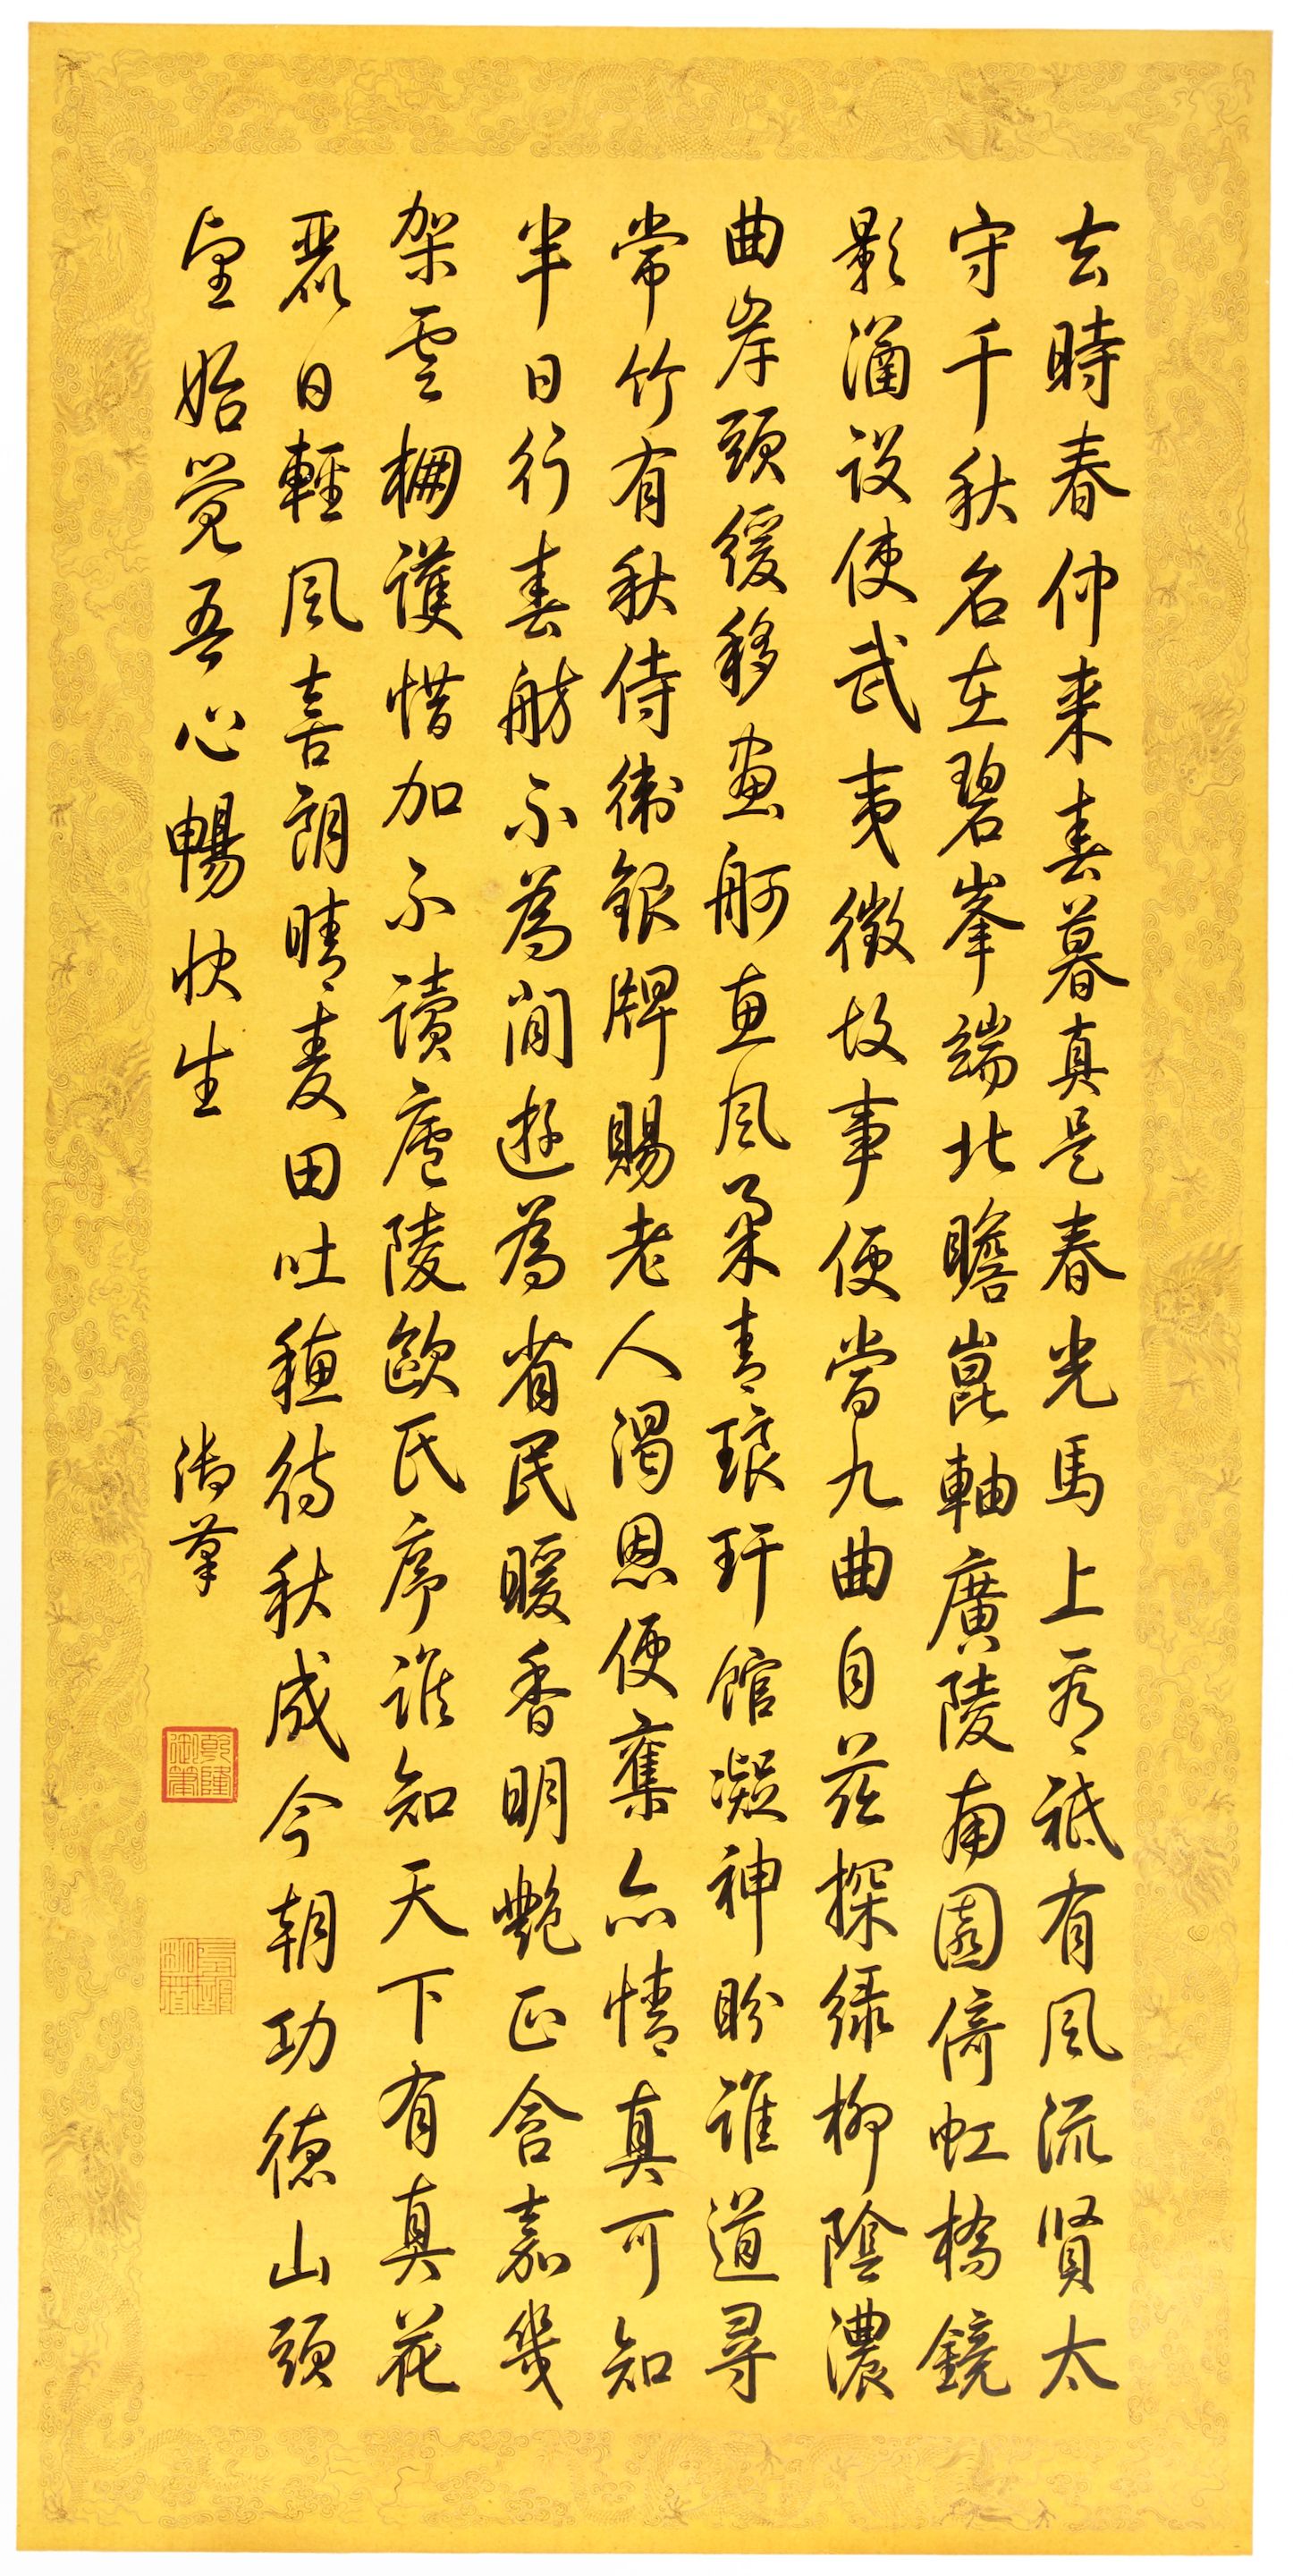 去時春仲来春暮真是春光馬上看祗有風流賢太
守千秋名在碧峯端北瞻崑軸廣陵南園倚虹橋鏡
影涵設使武夷徵故事便當九曲自茲探緑柳陰濃
曲岸頭緩移畫舸恵風柔青琅玕館凝神盼誰道尋
常竹有秋侍衛銀牌賜老人渴恩便奪亦情真可知
半日行春舫不為閒遊為省民暖香明艶正含嘉幾
架雲棚護惜加不讀廬陵歐氏序誰知天下有真花
麗日輕風喜朗晴麦田吐穗待秋成今朝功德山頭
望始覚吾心暢快生
御筆
乾隆御筆